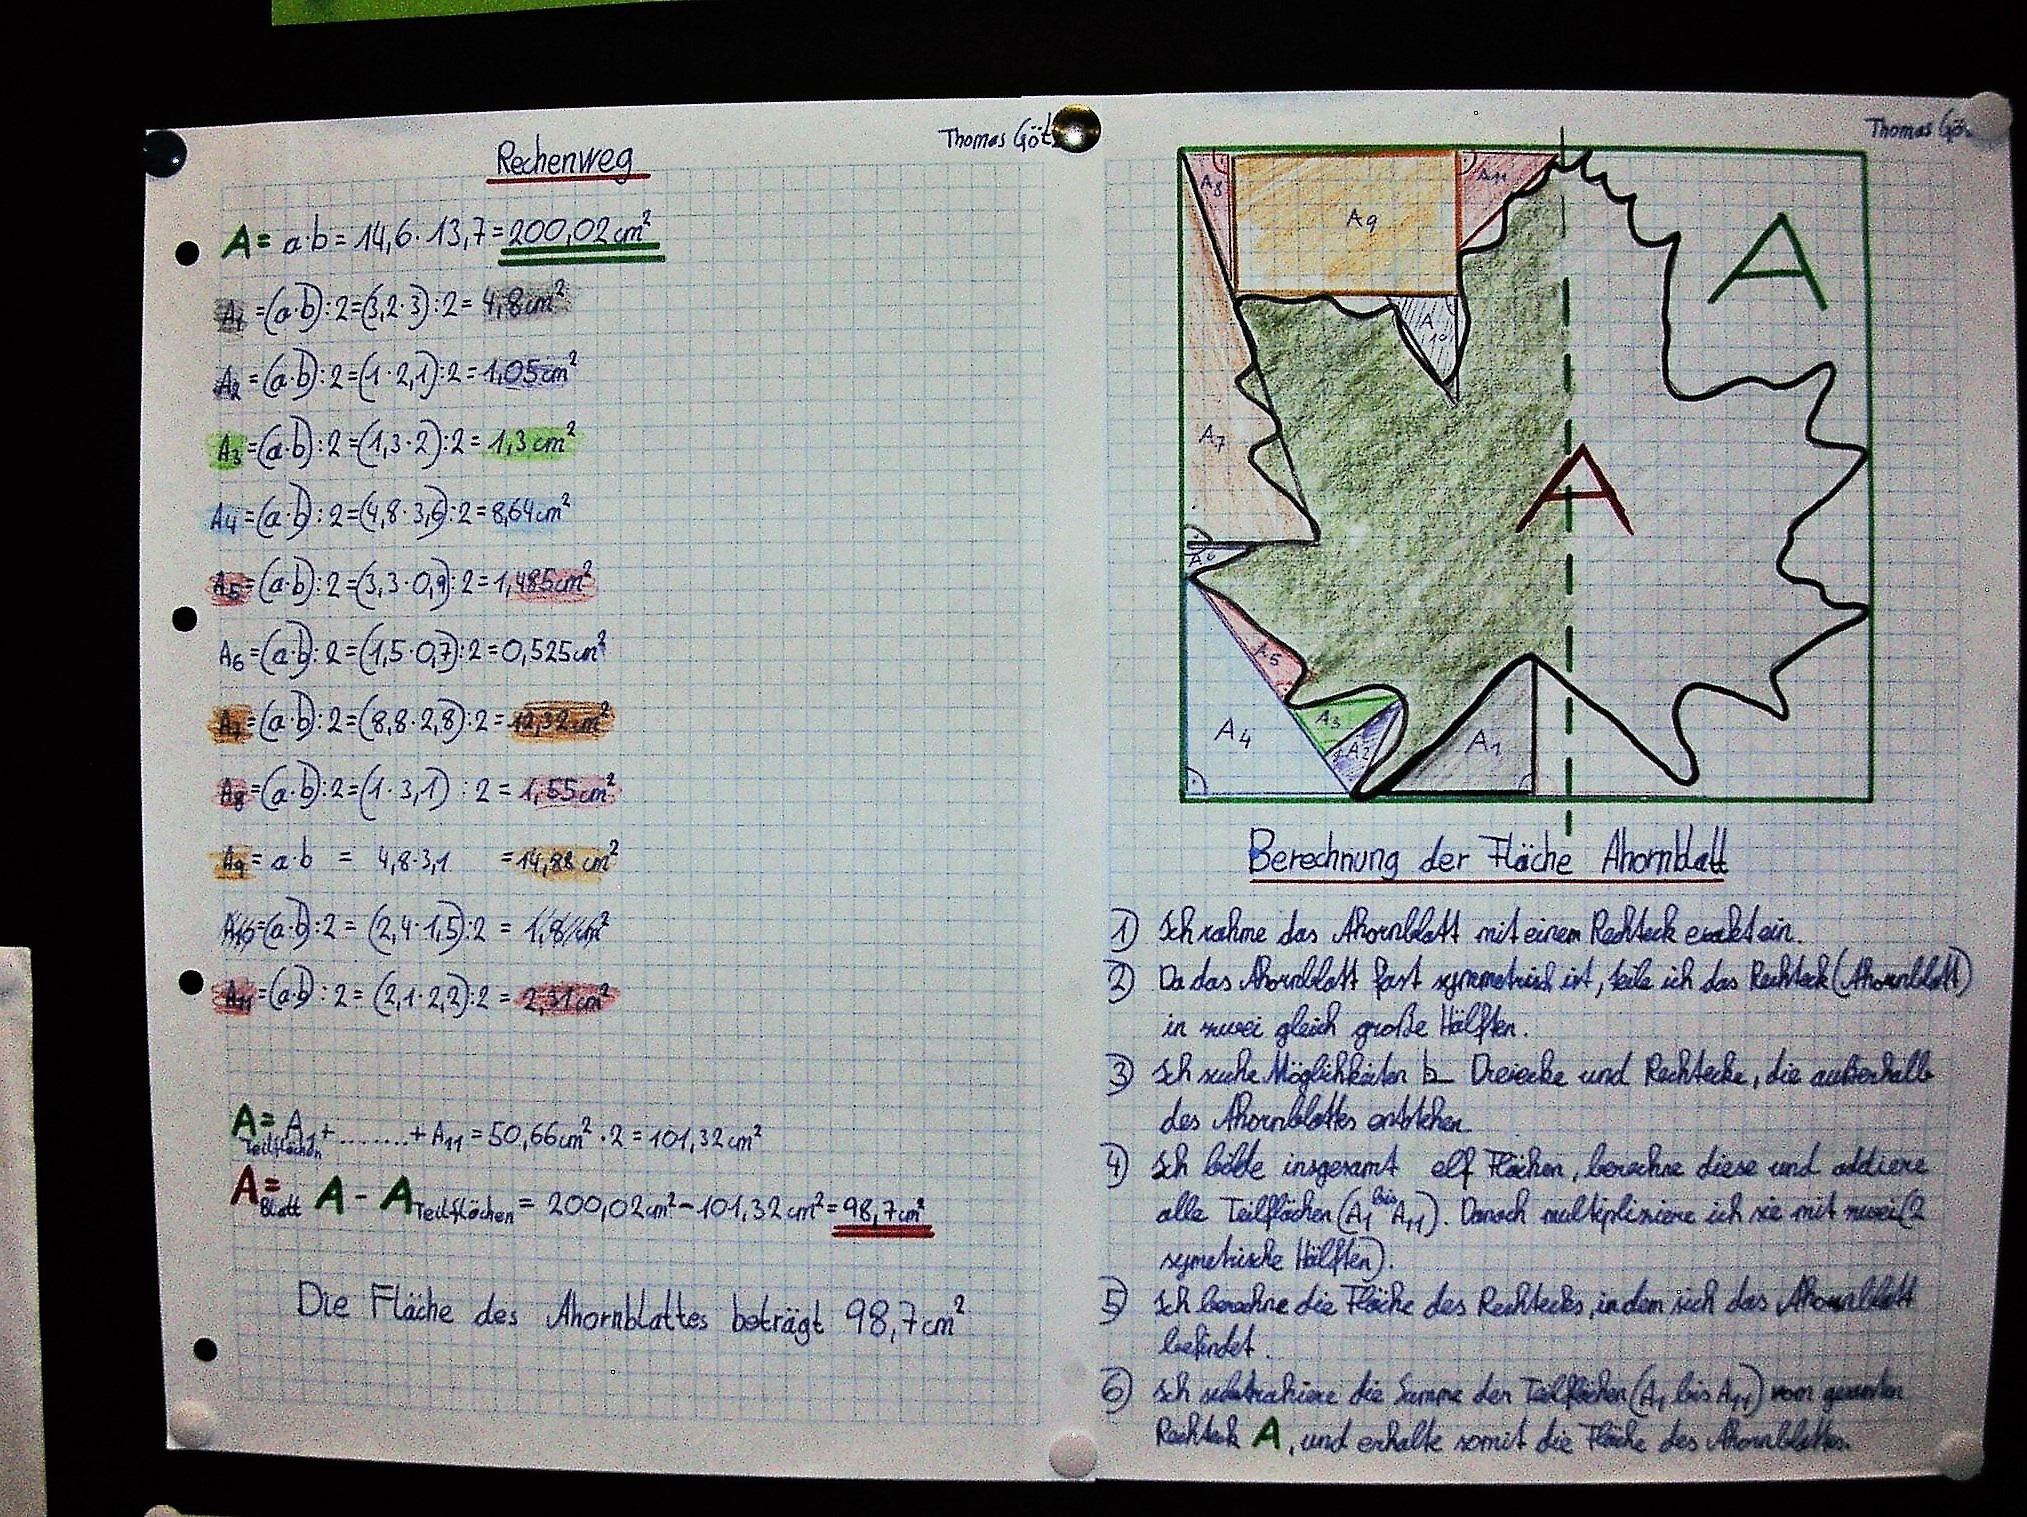 Thomas Götz
Rechenweg
A = a·b = 14,6·13,7 = 200,02 cm²
A1 = (a·b):2 = (3,2·3):2 = 4,8 cm²
A2 = (a·b):2 = (1·2,1):2 = 1,05 cm²
A3 = (a·b):2 = (1,3·2):2 = 1,3 cm²
A4 = (a·b):2 = (4,8·3,6):2 = 8,64 cm²
A5 = (a·b):2 = (3,3·0,9):2 = 1,485 cm²
A6 = (a·b):2 = (1,5·0,7):2 = 0,525 cm²
A7 = (a·b):2 = (8,8·2,8):2 = 12,32 cm²
A8 = (a·b):2 = (1·3,1):2 = 1,55 cm²
A9 = a·b = 4,8·3,1 = 14,88 cm²
A10 = (a·b):2 = (2,4·1,5):2 = 1,8 cm²
A11 = (a·b):2 = (2,1·2,2):2 = 2,31 cm²
A Teilflächen = A1 + ........ + A11 = 50,66 cm² · 2 = 101,32 cm²
A Blatt = A - A Teilflächen = 200,02 cm² - 101,32 cm² = 98,7 cm²
Die Fläche des Ahornblattes beträgt 98,7 cm²
Thomas Gö
A8
A9
A11
A
A10
A7
A
A6
A5
A4
A3
A2
A1
Berechnung der Fläche Ahornblatt
1) Ich rahme das Ahornblatt mit einem Rechteck exakt ein.
2) Da das Ahornblatt fast symmetrisch ist, teile ich das Rechteck (Ahornblatt)
in zwei gleich große Hälften.
3) Ich suche Möglichkeiten Dreiecke und Rechtecke, die außerhalb
des Ahornblattes entstehen.
4) Ich bilde insgesamt elf Flächen, berechne diese und addiere
alle Teilflächen (A1 bis A11). Danach multipliziere ich sie mit zwei (2
symetrische Hälften).
5) Ich berechne die Fläche des Rechtecks, in dem sich das Ahornblatt
befindet.
6) Ich subtrahiere die Summe der Teilflächen (A1 bis A11) vom gesamten
Rechteck A, und erhalte somit die Fläche des Ahornblattes.